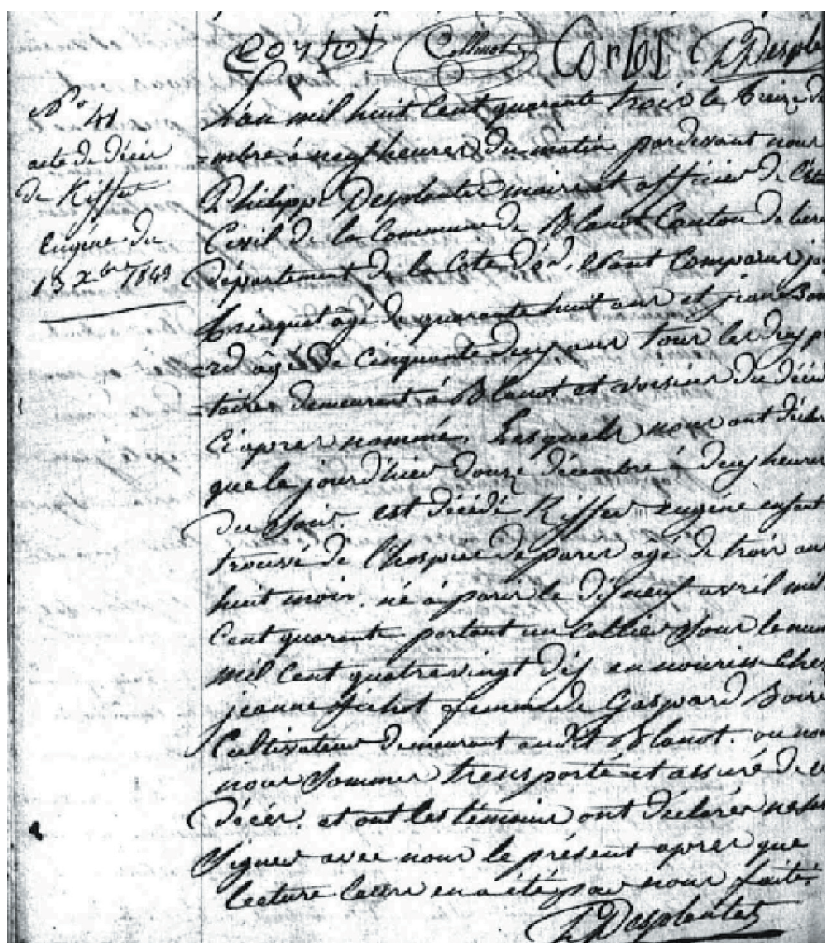 Cortot Collenot Corlot P Despla
N° 41
acte de décès
de Kiffer
Eugène du
13 Xbre 1843
L'an mil huit Cent quarante trois le treize dé
=mbre à neuf heures du matin pardevant nous
Philippe Desplantes maire et officier de l'éta
Civil de la Commune de Blanot Canton de
département de la Cote d'or, étant Comparus
âgé de quarante huit ans et jean
=rd âgé de Cinquante deux ans tous les deux p
=taires demeurent à Blanot et voisins du décéd
Ci après nommé, Lesquels nous ont déclar
que le jourd'hier douze décembre à deux heures
du Soir est décédé Kiffer eugène enfant
trouvé de l'hospice de paris agé de trois ans
huit mois, né à paris le dixneuf avril mil
Cent quarante portant un Collier Sous le num
mil Cent quatrevingt dix en nouriss Chez
jeanne femme de Gaspard
Cultivateur demeurant audit Blanot, ou nous
nous Sommes transporté et assuré de
décès, et ont les témoins ont déclarés ne
Signer avec nous le présent après que
lecture leurs en a été par nous faite.
P Desplantes